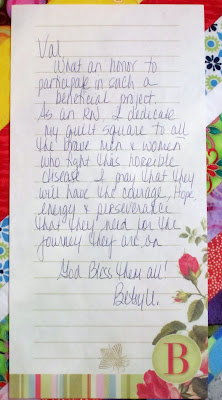 Val
What an honor to
participate in such a
beneficial project.
As an RN I dedicate
my quilt square to all
the brave men & women
who fight this horrible
disease. I pray that they
will have the courage, Hope,
energy & perseverance
that they need for the
journey they are on
God Bless them all!
B